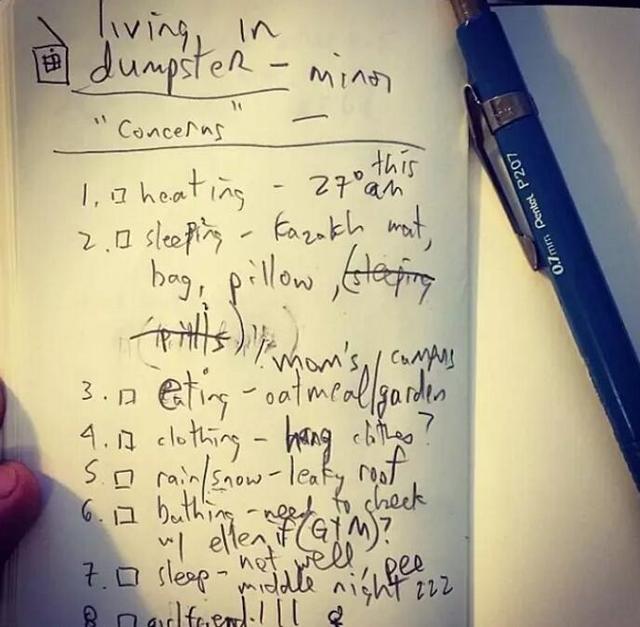 living in
dumpster – minor
"Concerns" –
this
1. □ heating - 27° am
2. □ sleeping - Kazakh mat,
bag, pillow, (sleeping
pills)
mom's / campus
3. □ eating - oatmeal/garden
4. □ clothing - hang clothes?
5. □ rain/snow - leaky roof
6. □ bathing - need to check
w/ ellen if (GYM)?
7. □ sleep - not well, pee
middle night zzz
8 □ girlfriend!!! ♀
0.7mm Pentel P207